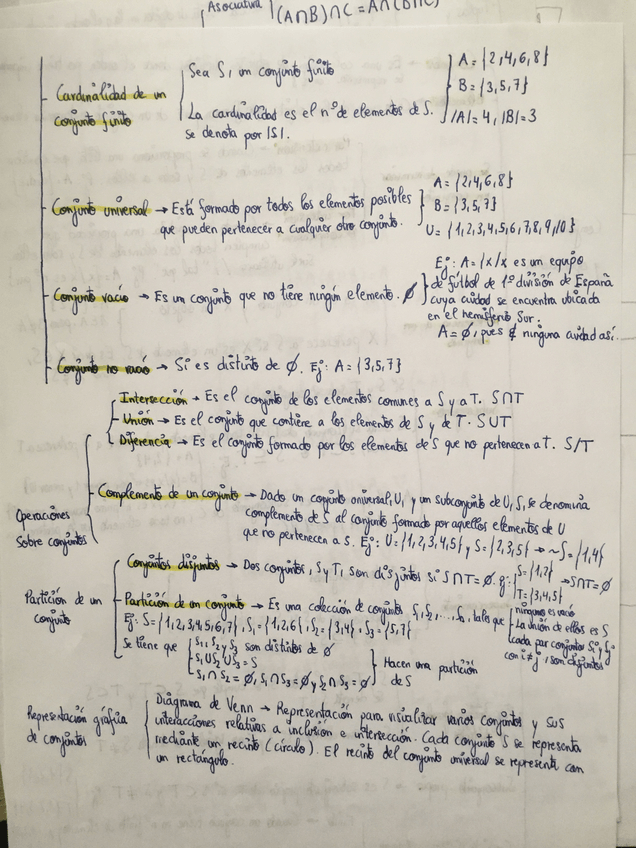 Asociativa (A∩B)∩C = A∩(B∩C)
Cardinalidad de un
conjunto finito
Sea S, un conjunto finito
La cardinalidad es el nº de elementos de S.
se denota por |S|.
A = {2,4,6,8}
B = {3,5,7}
|A| = 4, |B| = 3
Conjunto universal → Está formado por todos los elementos posibles
que pueden pertenecer a cualquier otro conjunto.
A = {2,4,6,8}
B = {3,5,7}
U = {1,2,3,4,5,6,7,8,9,10}
Conjunto vacío → Es un conjunto que no tiene ningún elemento. ∅
Ej: A = {x/x es un equipo
de fútbol de 1ª división de España
cuya ciudad se encuentra ubicada
en el hemisferio Sur.
A = ∅, pues ∄ ninguna ciudad así.
Conjunto no vacío → Si es distinto de ∅. Ej: A = {3,5,7}
Operaciones
sobre conjuntos
Intersección → Es el conjunto de los elementos comunes a S y a T. S∩T
Unión → Es el conjunto que contiene a los elementos de S y de T. S∪T
Diferencia → Es el conjunto formado por los elementos de S que no pertenecen a T. S/T
Complemento de un conjunto → Dado un conjunto universal, U, y un subconjunto de U, S, se denomina
complemento de S al conjunto formado por aquellos elementos de U
que no pertenecen a S. Ej: U = {1,2,3,4,5} y S = {2,3,5} → ~S = {1,4}
Partición de un
conjunto
Conjuntos disjuntos → Dos conjuntos, S y T, son disjuntos si S∩T = ∅. Ej: S = {1,2} → S∩T = ∅
T = {3,4,5}
Partición de un conjunto → Es una colección de conjuntos S₁, S₂, ..., Sₙ, tales que
ninguno es vacío
La unión de ellos es S
cada par conjuntos Sᵢ y Sⱼ
con i ≠ j, son disjuntos
Ej: S = {1,2,3,4,5,6,7}, S₁ = {1,2,6}, S₂ = {3,4}, S₃ = {5,7}
Se tiene que S₁, S₂ y S₃ son distintos de ∅
S₁∪S₂∪S₃ = S
S₁∩S₂ = ∅, S₁∩S₃ = ∅ y S₂∩S₃ = ∅
Hacen una partición
de S
Representación gráfica
de conjuntos
Diagrama de Venn → Representación para visualizar varios conjuntos y sus
interacciones relativas a inclusión e intersección. Cada conjunto S se representa
mediante un recinto (círculo). El recinto del conjunto universal se representa con
un rectángulo.